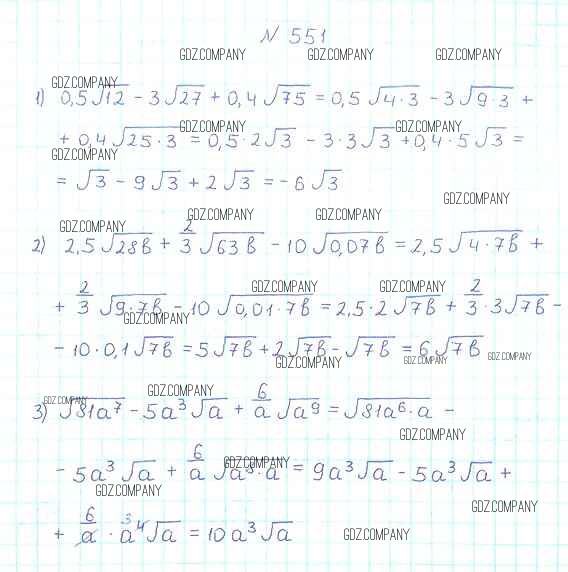 N 551
GDZ.COMPANY GDZ.COMPANY GDZ.COMPANY
GDZ.COMPANY
1) 0,5√12 - 3√27 + 0,4√75 = 0,5√4·3 - 3√9·3 +
GDZ.COMPANY GDZ.COMPANY
+ 0,4√25·3 = 0,5·2√3 - 3·3√3 + 0,4·5√3 =
GDZ.COMPANY
= √3 - 9√3 + 2√3 = -6√3
GDZ.COMPANY
GDZ.COMPANY GDZ.COMPANY GDZ.COMPANY
2) 2,5√28в + 2/3 √63в - 10√0,07в = 2,5√4·7в +
GDZ.COMPANY GDZ.COMPANY
+ 2/3 √9·7в - 10√0,01·7в = 2,5·2√7в + 2/3·3√7в -
GDZ.COMPANY
- 10·0,1√7в = 5√7в + 2√7в - √7в = 6√7в
GDZ.COMPANY GDZ.COMPANY GDZ.COMPANY
GDZ.COMPANY GDZ.COMPANY
3) √81a⁷ - 5a³√a + 6/a √a⁹ = √81a⁶·a -
GDZ.COMPANY
- 5a³√a + 6/a √a⁸·a = 9a³√a - 5a³√a +
GDZ.COMPANY
GDZ.COMPANY GDZ.COMPANY
+ 6/a · a³ ⁴√a = 10a³√a
GDZ.COMPANY